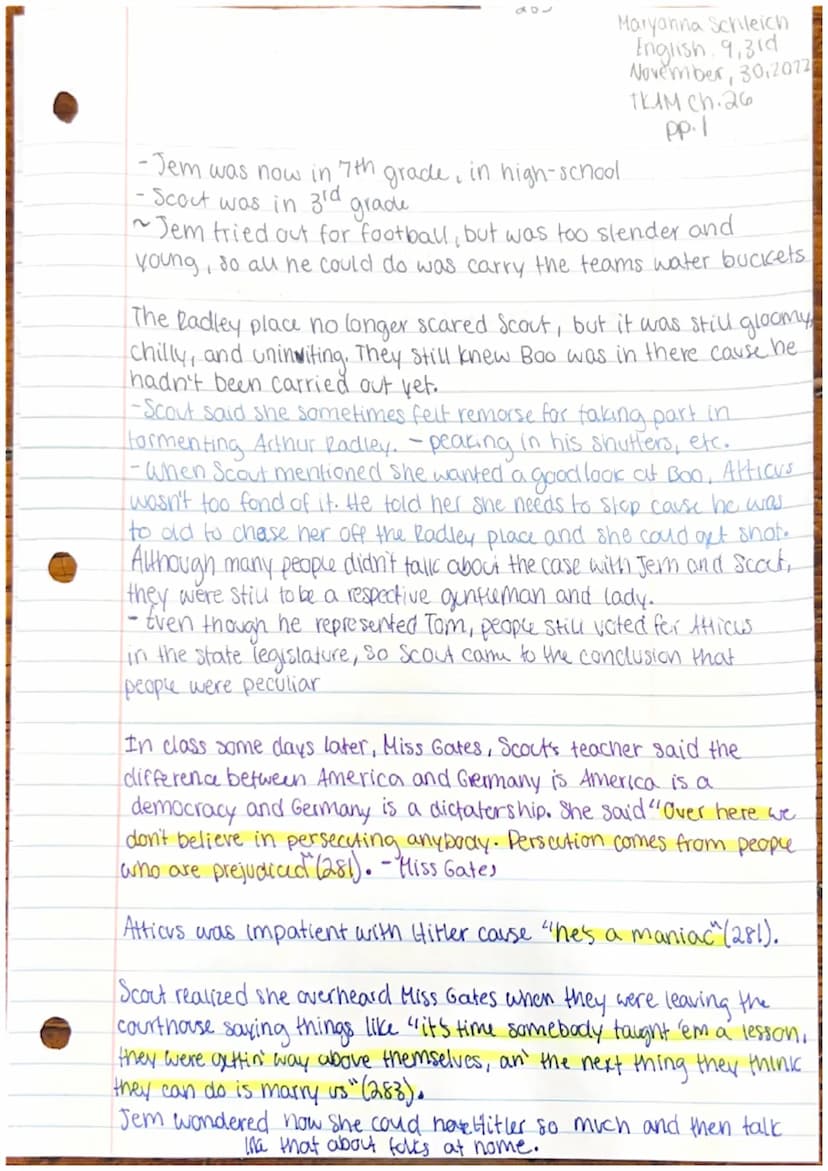 Maryanna Schleich
English. 9, 3rd
November, 30, 2022
TKAM Ch. 26
pp. 1
- Jem was now in 7th grade, in high-school
- Scout was in 3rd grade
~ Jem tried out for football, but was too slender and
young, so all he could do was carry the teams water buckets
The Radley place no longer scared Scout, but it was still gloomy,
chilly, and uninviting. They still knew Boo was in there cause he
hadn't been carried out yet.
- Scout said she sometimes felt remorse for taking part in
tormenting Arthur Radley. - peaking in his shutters, etc.
- When Scout mentioned she wanted a good look at Boo, Atticus
wasn't too fond of it. He told her she needs to stop cause he was
to old to chase her off the Radley place and she could get shot.
Although many people didn't talk about the case with Jem and Scout,
they were still to be a respective gentleman and lady.
- Even though he represented Tom, people still voted for Atticus
in the state legislature, so Scout came to the conclusion that
people were peculiar
In class some days later, Miss Gates, Scout's teacher said the
difference between America and Germany is America is a
democracy and Germany is a dictatorship. She said "Over here we
don't believe in persecuting anybody. Perscution comes from people
who are prejudiced" (281). - Miss Gates
Atticus was impatient with Hitler cause "he's a maniac" (281).
Scout realized she overheard Miss Gates when they were leaving the
courthouse saying things like "it's time somebody taught 'em a lesson,
they were gettin' way above themselves, an' the next thing they think
they can do is marry us" (283).
Jem wondered how she could hate Hitler so much and then talk
like that about folks at home.